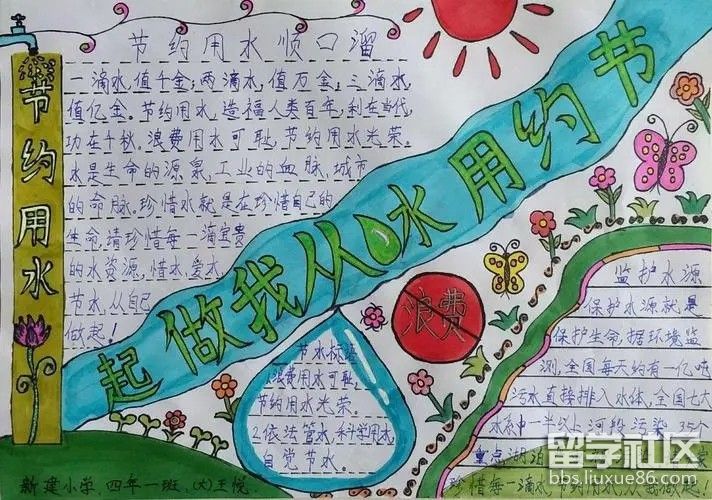 节约用水
节约用水顺口溜
一滴水,值千金;两滴水,值万金,三滴水,
值亿金。节约用水,造福人类百年,利在当代,
功在千秋。浪费用水可耻,节约用水光荣。
水是生命的源泉,工业的血脉,城市
的命脉。珍惜水就是在珍惜自己的
生命,请珍惜每一滴宝贵
的水资源,惜水爱水,
节水,从自己
做起!
节约用水从我做起
浪费
节水标语
1.浪费用水可耻,
节约用水光荣。
2.依法管水,科学用水,
自觉节水。
监护水源
保护水源就是
保护生命,据环境监
测,全国每天约有一亿吨
污水直接排入水体,全国七大
水系中一半以上河段污染.35个
重点湖泊
珍惜每一滴水,
新建小学.四年一班.(大)王悦
留学社区
bbs.liuxue86.com